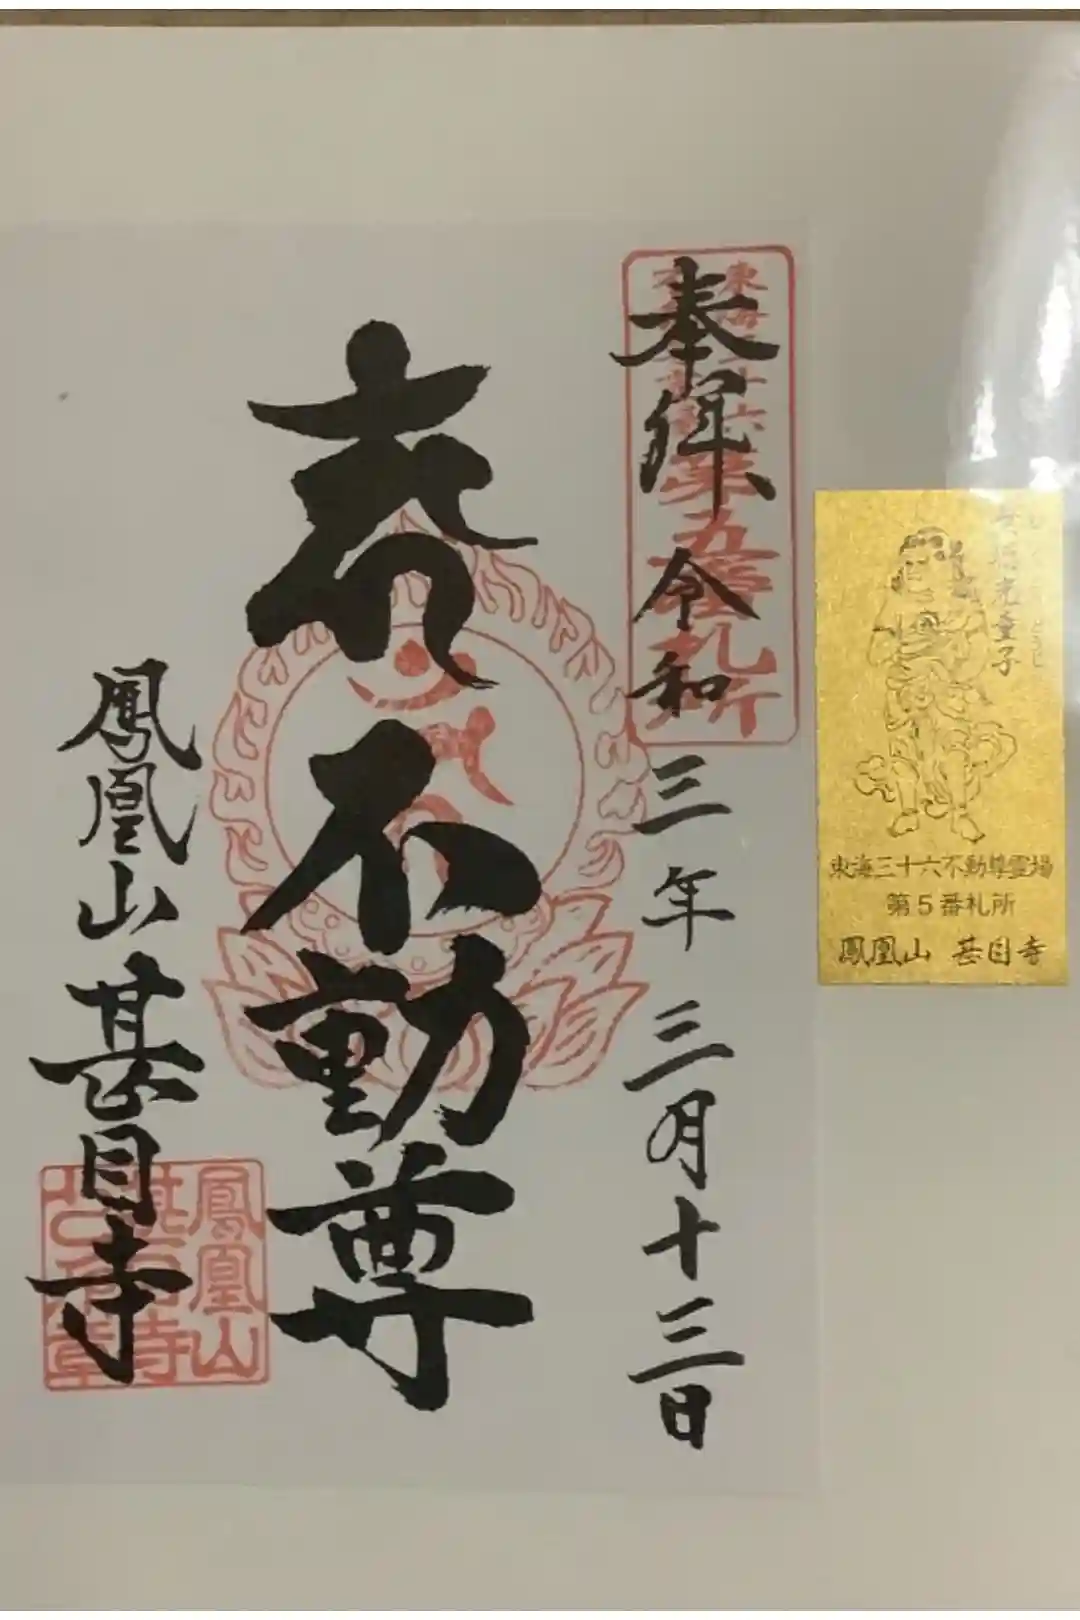 奉拝 令和三年三月十三日
第五番札所
不動尊
鳳凰山 甚目寺
鳳凰山
甚目寺
光童子
東海三十六不動尊霊場
第5番札所
鳳凰山 甚目寺